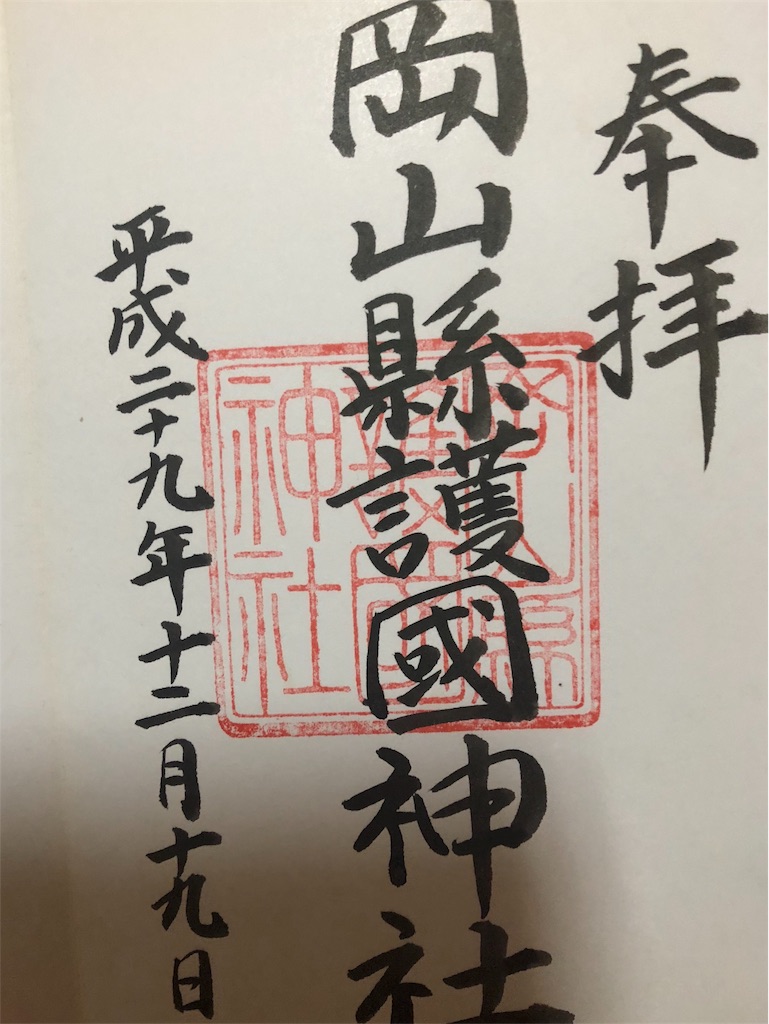 奉拝
岡山縣護國神社
平成二十九年十二月十九日
神社